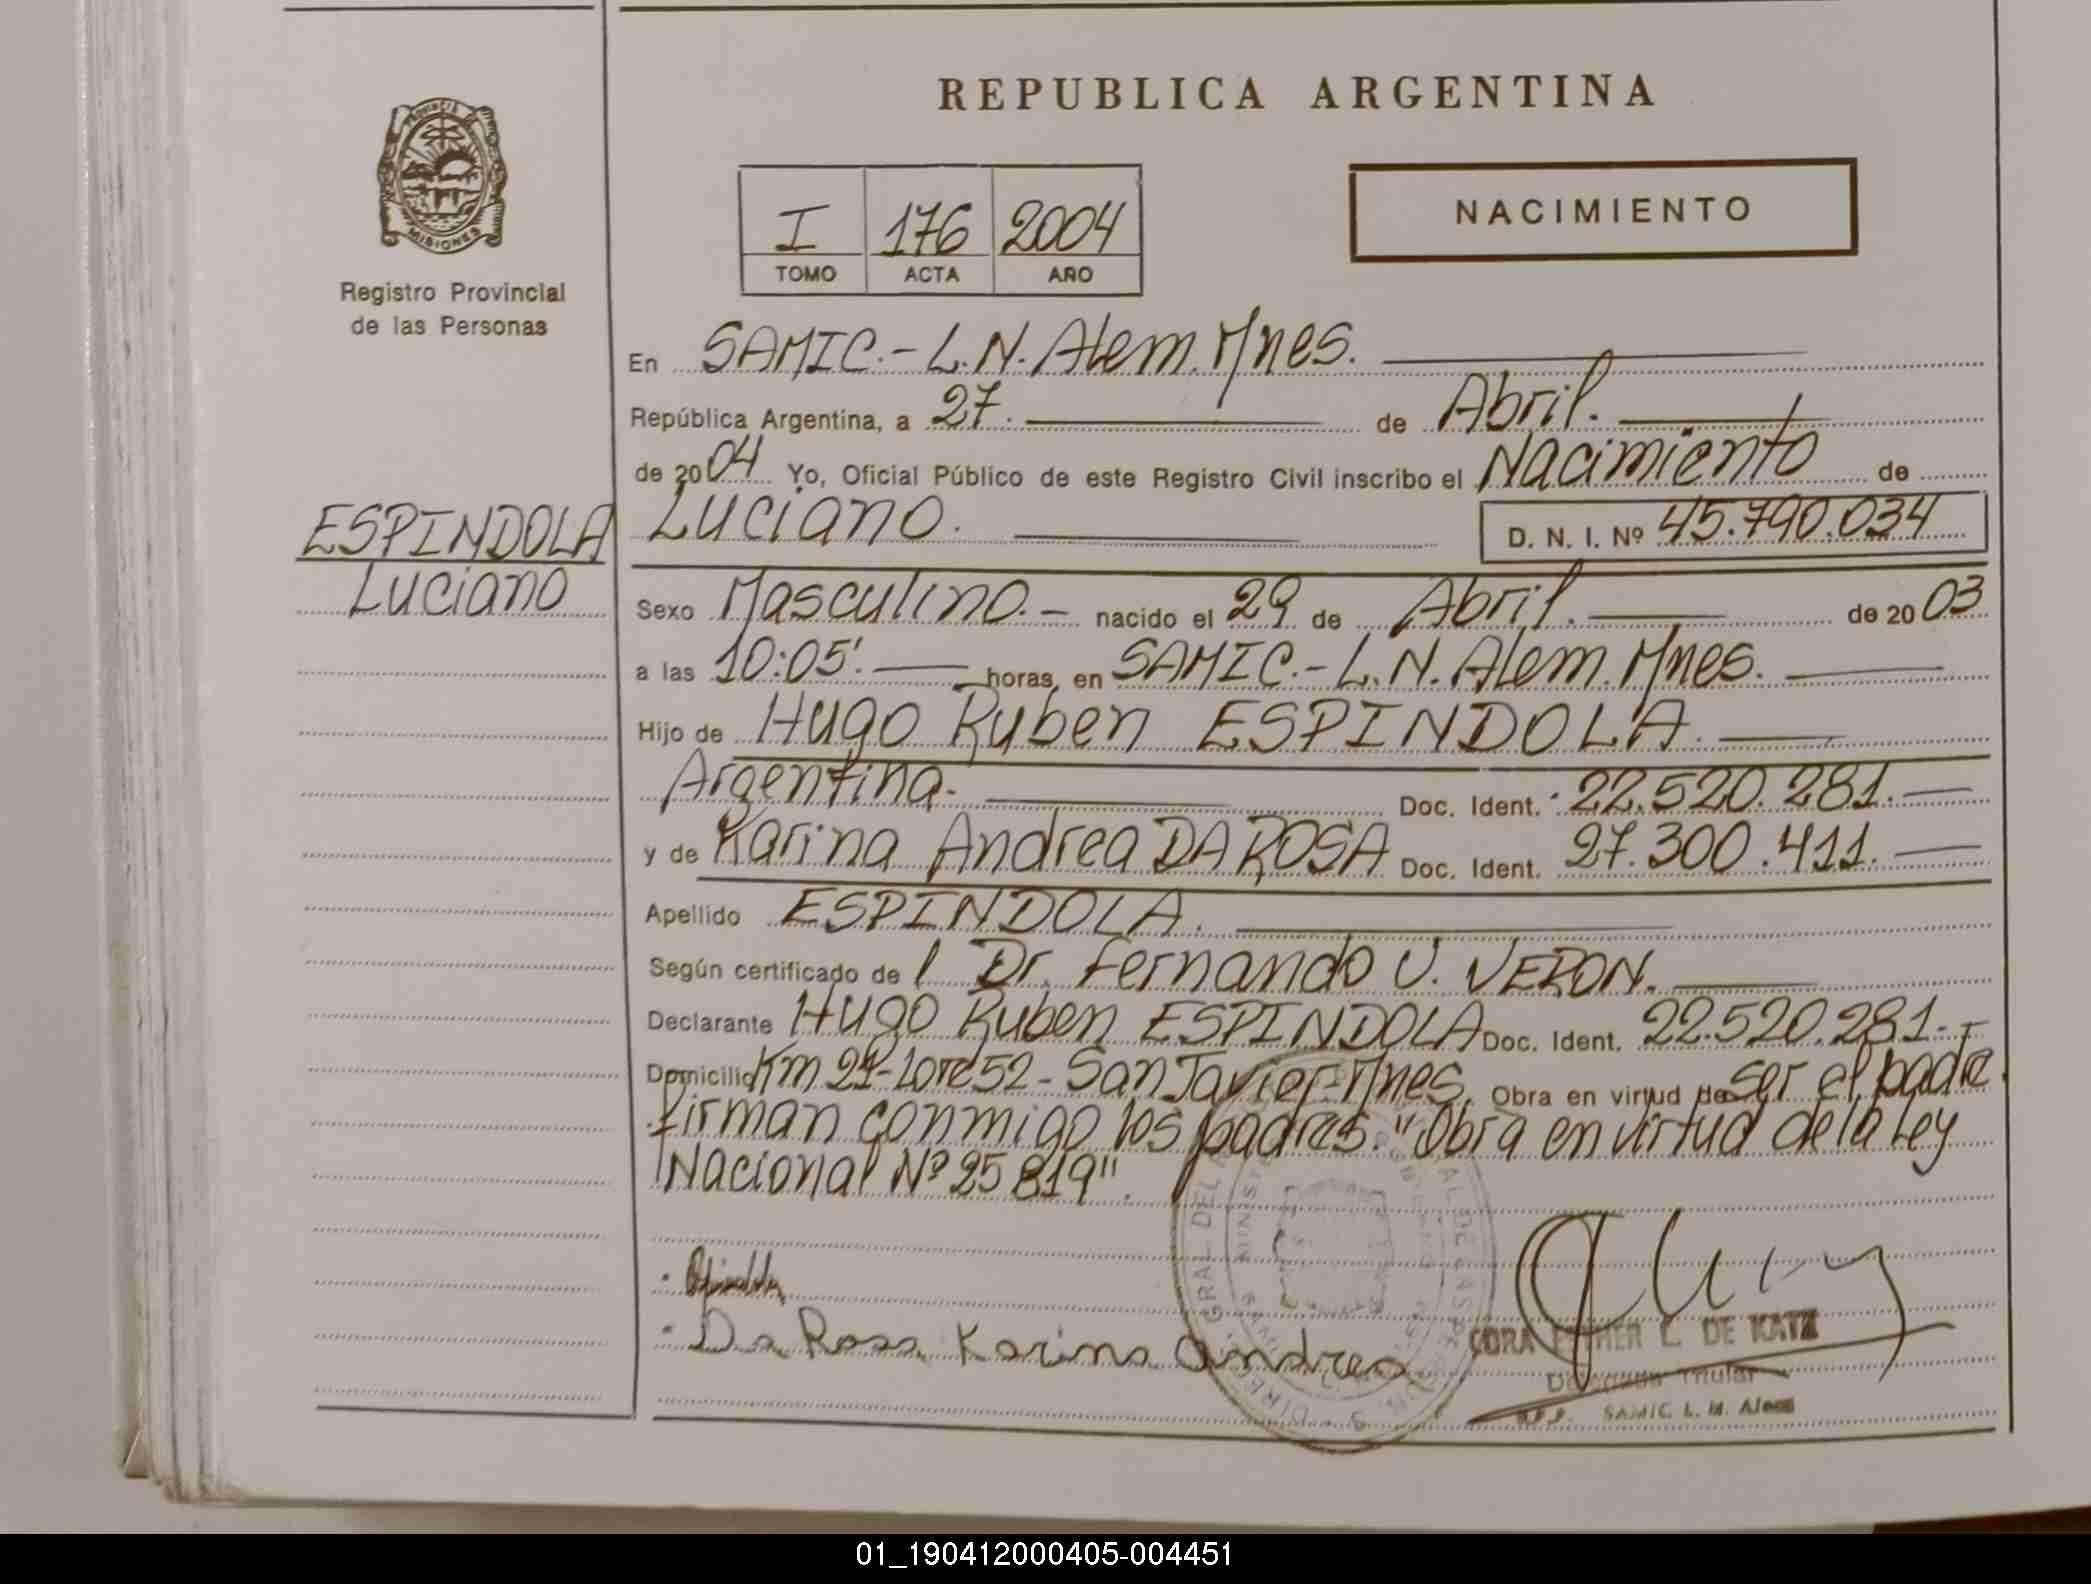 REPUBLICA ARGENTINA
PROVINCIA DE
MISIONES
Registro Provincial
de las Personas
I 176 2004
TOMO ACTA AÑO
NACIMIENTO
En SAMIC.- L.N. Alem. Mnes.
República Argentina, a 27. de Abril.
de 2004 Yo, Oficial Público de este Registro Civil inscribo el Nacimiento de
ESPINDOLA
Luciano
Luciano. D. N. I. Nº 45.790.034
Sexo Masculino.- nacido el 29 de Abril. de 2003
a las 10:05'. horas, en SAMIC.- L.N. Alem. Mnes.
Hijo de Hugo Ruben ESPINDOLA.
Argentina. Doc. Ident. 22.520.281.
y de Karina Andrea DA ROSA Doc. Ident. 27.300.411.
Apellido ESPINDOLA.
Según certificado de l Dr. Fernando U. VERON.
Declarante Hugo Ruben ESPINDOLA Doc. Ident. 22.520.281.-
Domicilio Km 24-Lote 52- San Javier-Mnes. Obra en virtud de ser el padre
firman conmigo los padres. "Obra en virtud de la Ley
Nacional Nº 25819".
Da Rosa Karina Andrea
CORA ESTHER L. DE KATZ
Delegada Titular
R.P.P. SAMIC L. N. Alem
01_190412000405-004451